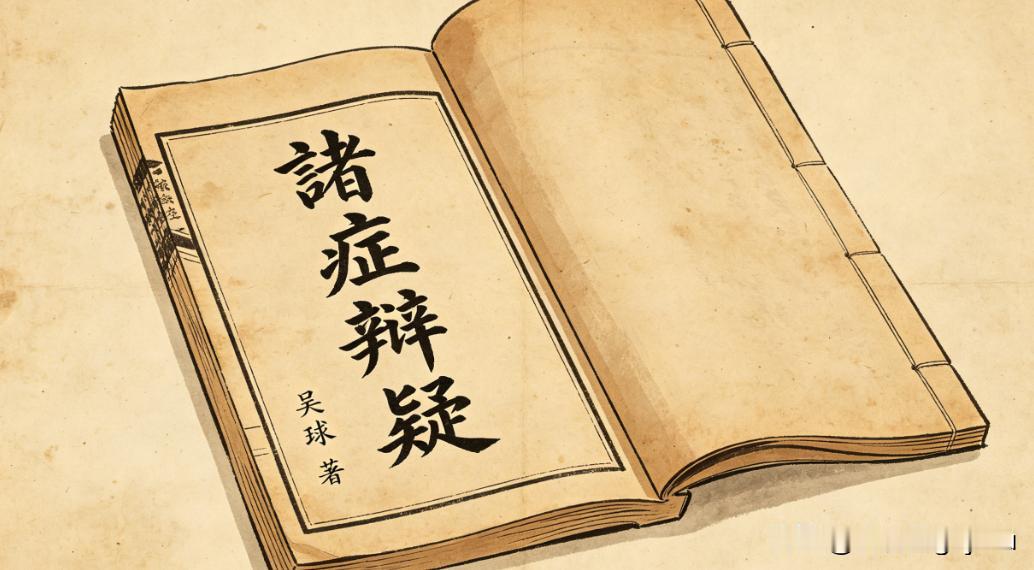 諸症辯疑
吴球 著